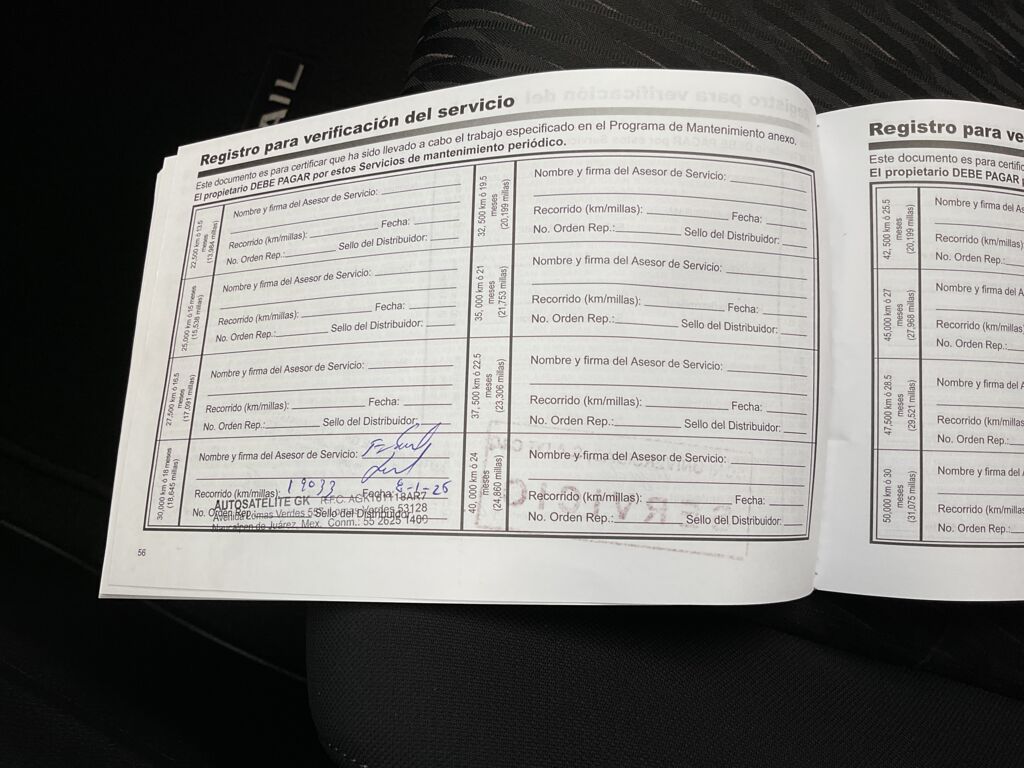 AIL
Registro para verificación del servicio
Este documento es para certificar que ha sido llevado a cabo el trabajo especificado en el Programa de Mantenimiento anexo.
El propietario DEBE PAGAR por estos Servicios de mantenimiento periódico.
22,500 km ó 13.5
meses
Nombre y firma del Asesor de Servicio:
Recorrido (km/millas): Fecha:
No. Orden Rep.: Sello del Distribuidor:
25,000 km ó 15 meses
(15,538 millas)
Nombre y firma del Asesor de Servicio:
Recorrido (km/millas): Fecha:
No. Orden Rep.: Sello del Distribuidor:
27,500 km ó 16.5
meses
(17,091 millas)
Nombre y firma del Asesor de Servicio:
Recorrido (km/millas): Fecha:
No. Orden Rep.: Sello del Distribuidor:
30,000 km ó 18 meses
(18,645 millas)
Nombre y firma del Asesor de Servicio:
Recorrido (km/millas): 19033 Fecha:
No. Orden Rep.: Sello del Distribuidor:
AUTOSATELITE GK R.F.C.
Avenida Lomas Verdes Verdes 53128
Naucalpan de Juárez, Mex. Conm.: 55 2625 1400
32, 500 km ó 19.5
meses
(20,199 millas)
Nombre y firma del Asesor de Servicio:
Recorrido (km/millas): Fecha:
No. Orden Rep.: Sello del Distribuidor:
35, 000 km ó 21
meses
(21,753 millas)
Nombre y firma del Asesor de Servicio:
Recorrido (km/millas): Fecha:
No. Orden Rep.: Sello del Distribuidor:
37, 500 km ó 22.5
meses
(23,306 millas)
Nombre y firma del Asesor de Servicio:
Recorrido (km/millas): Fecha:
No. Orden Rep.: Sello del Distribuidor:
40, 000 km ó 24
meses
(24,860 millas)
Nombre y firma del Asesor de Servicio:
Recorrido (km/millas): Fecha:
No. Orden Rep.: Sello del Distribuidor:
56
Registro para ve
Este documento es para certific
El propietario DEBE PAGAR
42, 500 km ó 25.5
meses
(20,199 millas)
Nombre y firma del As
Recorrido (km/millas)
No. Orden Rep.:
45,000 km ó 27
meses
(27,968 millas)
Nombre y firma del A
Recorrido (km/millas
No. Orden Rep.:
47,500 km ó 28.5
meses
(29,521 millas)
Nombre y firma del A
Recorrido (km/millas
No. Orden Rep.:
50,000 km ó 30
meses
(31,075 millas)
Nombre y firma del A
Recorrido (km/millas
No. Orden Rep.: